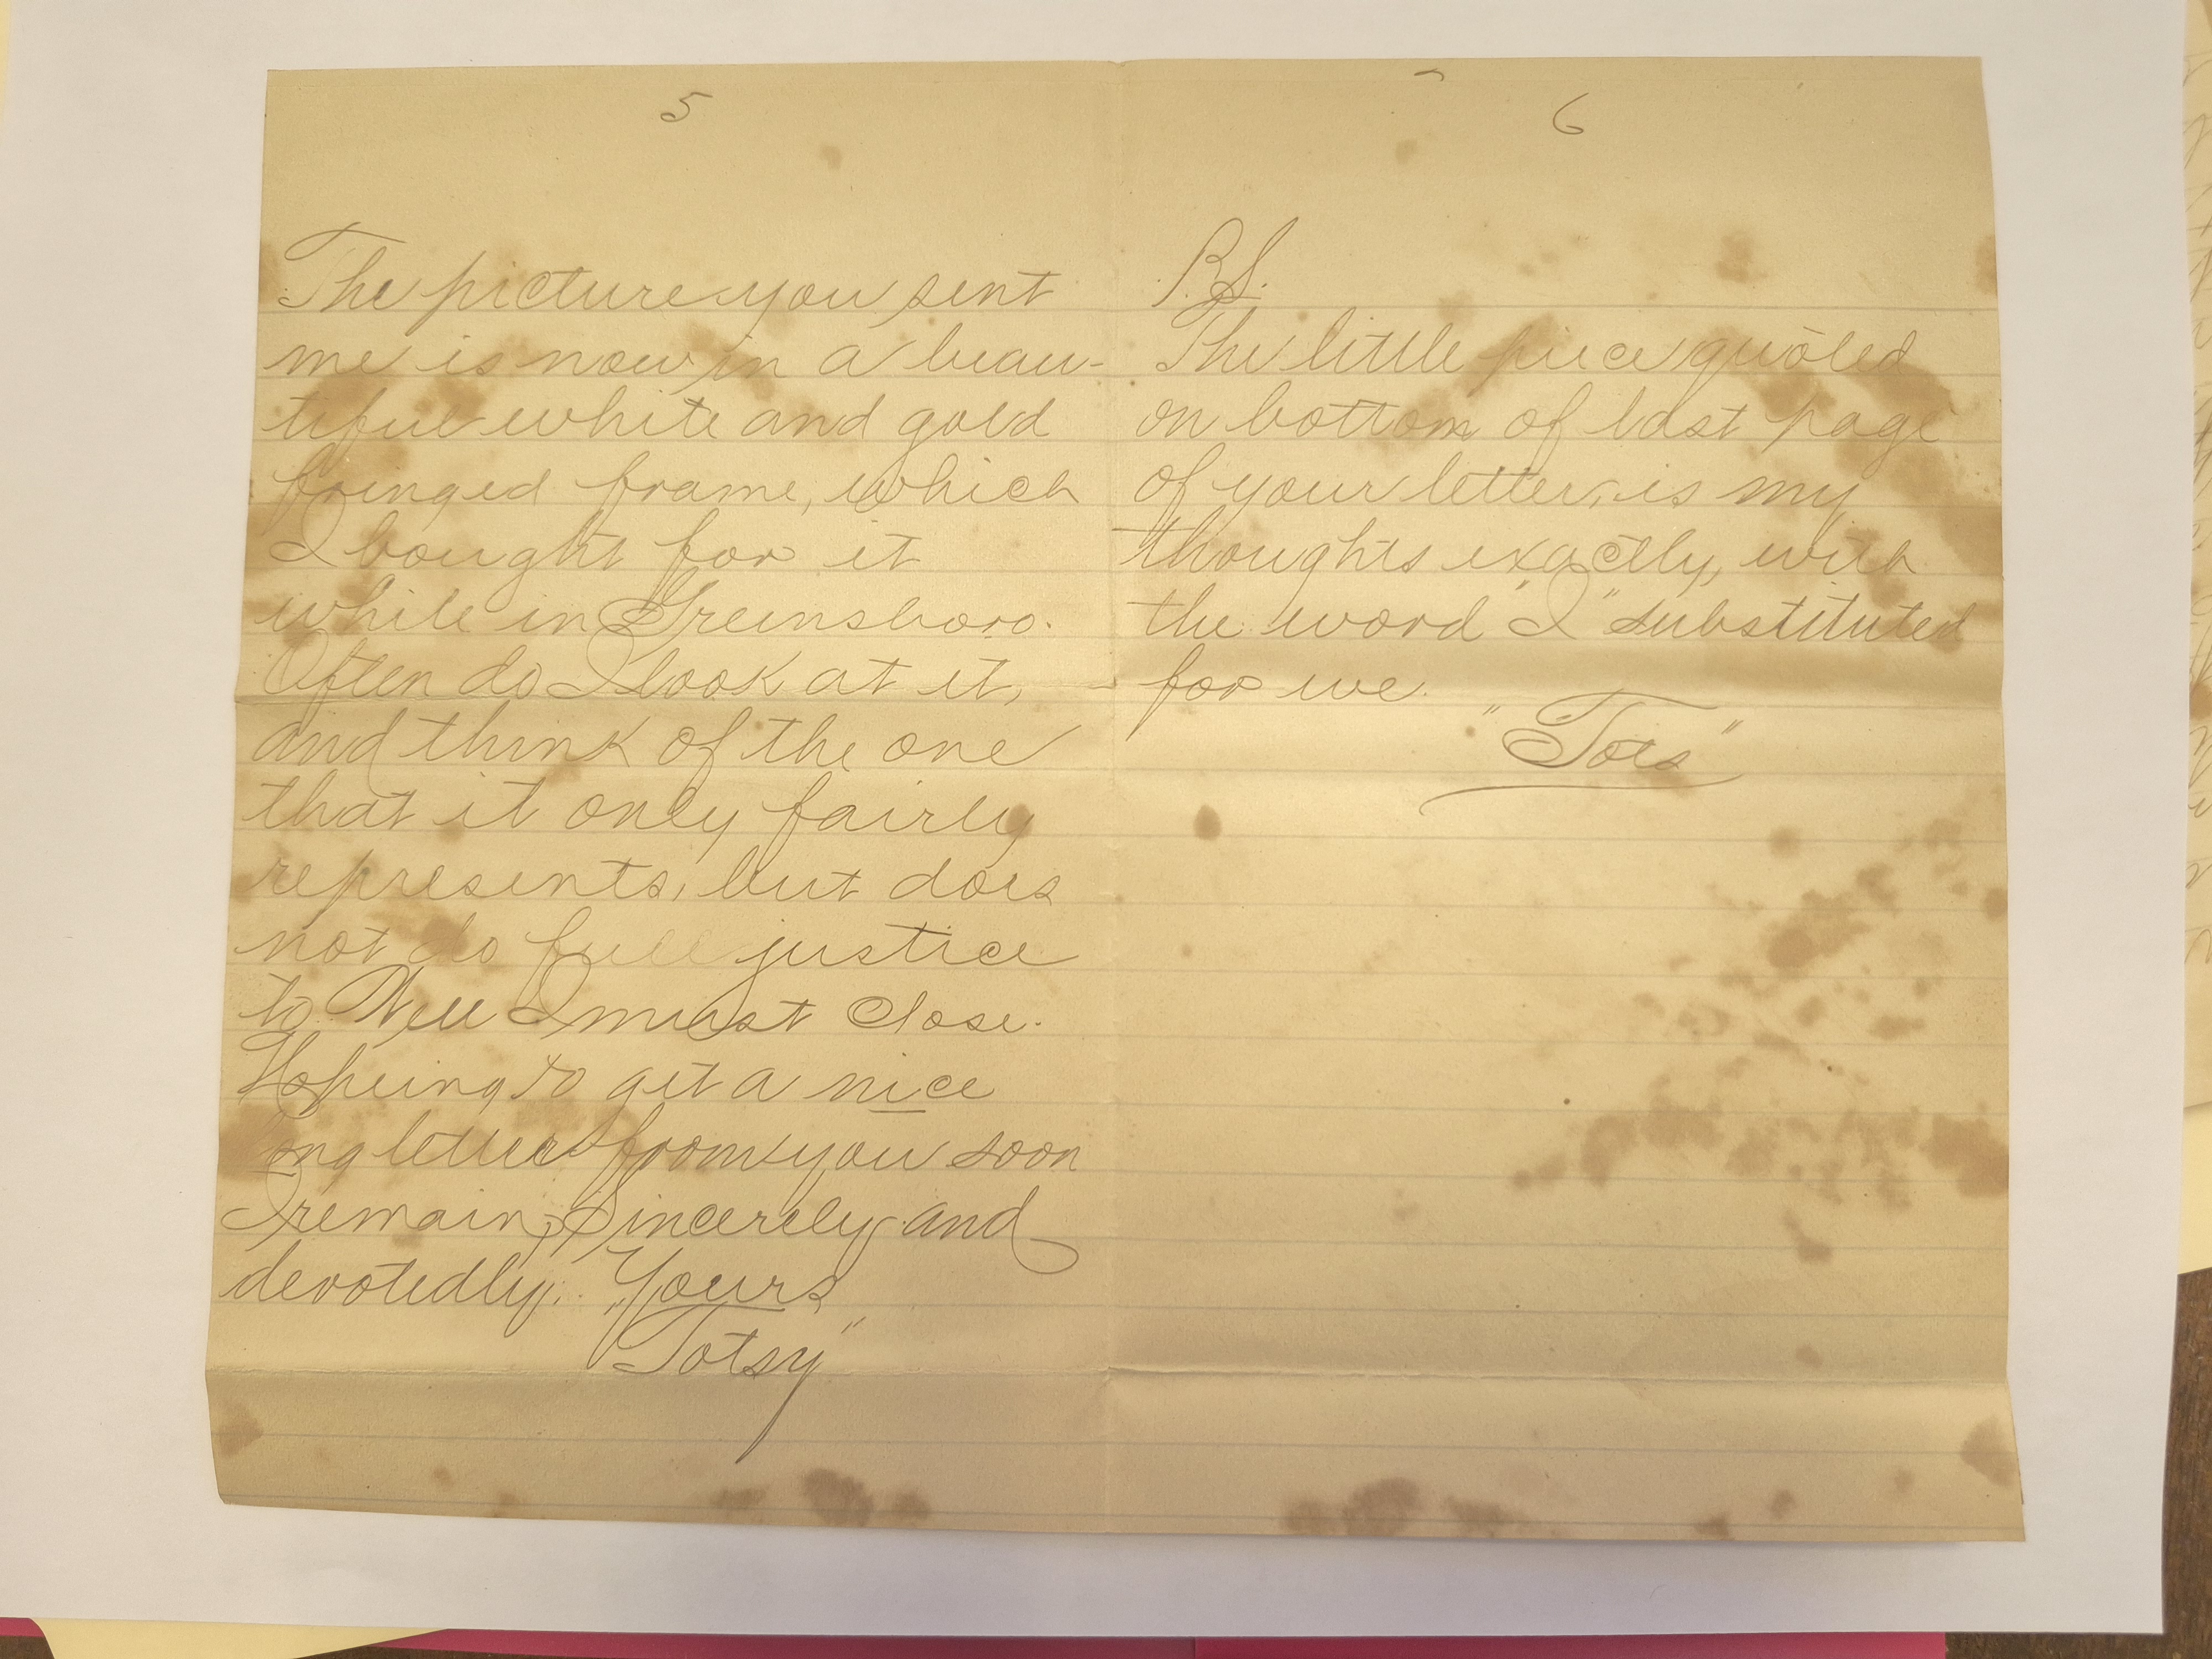 5
The picture you sent
me is now in a beau-
tiful white and gold
fringed frame, which
I bought for it
while in Greensboro.
Often do I look at it,
and think of the one
that it only fairly
represents, but does
not do full justice
to. Well I must close.
Hopeing to get a nice
long letter from you soon
I remain, Sincerely and
devotedly. Yours
"Totsy"
6
P.S.
The little piece quoted
on bottom of last page
of your letter, is my
thoughts exactly, with
the word "I" substituted
for we.
"Tots"